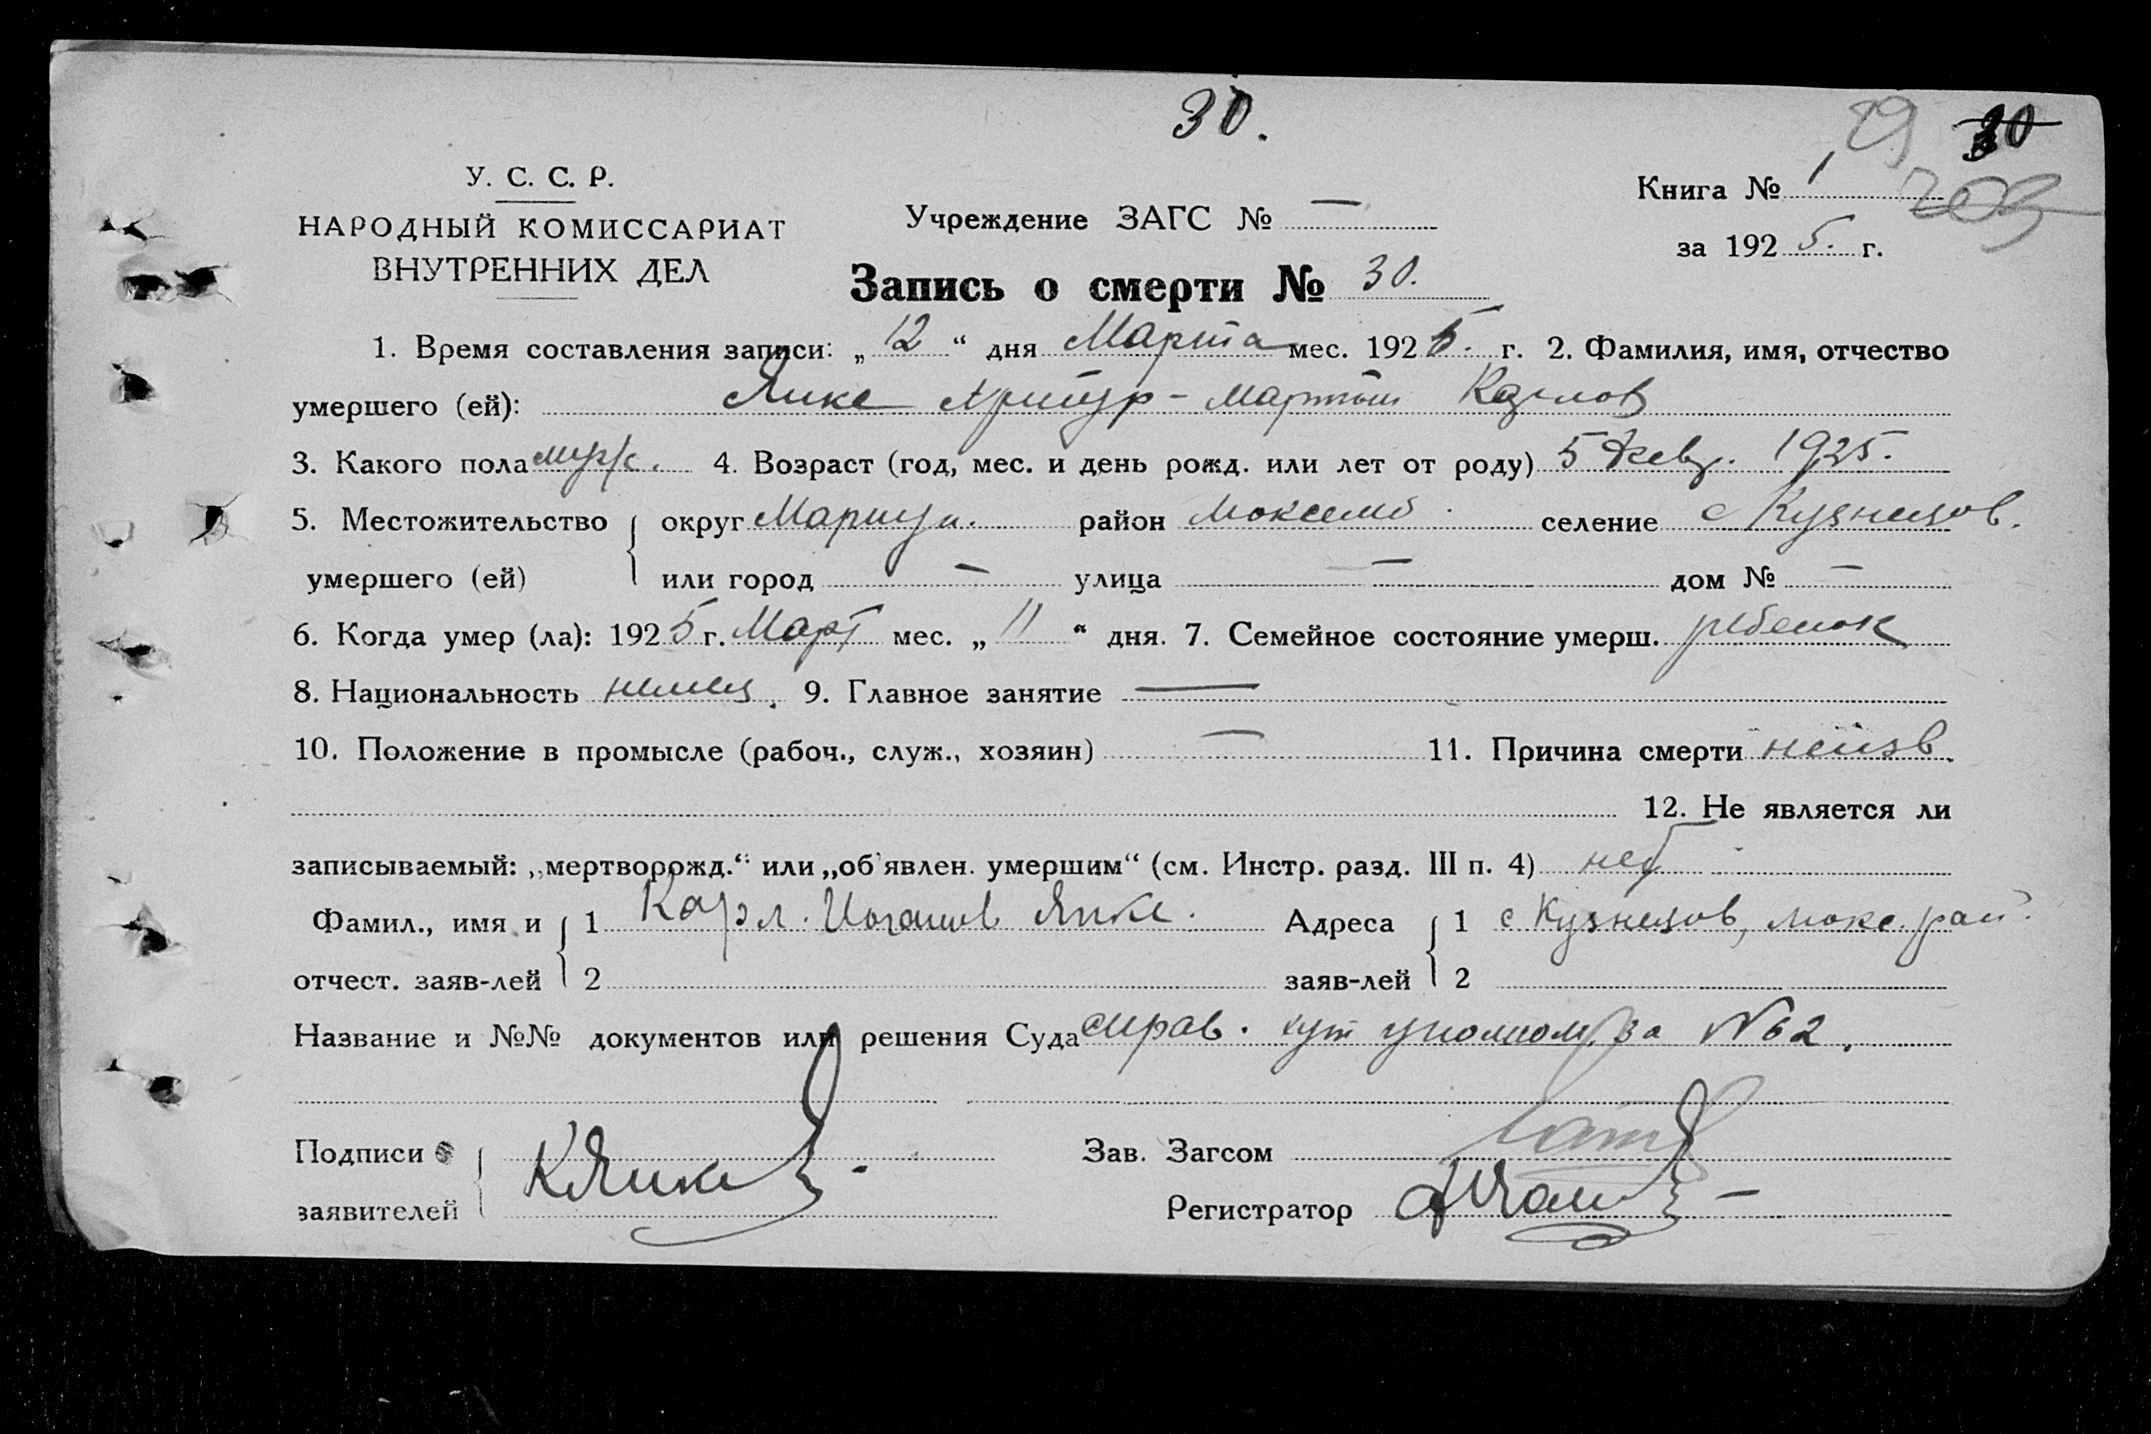 30.
29 30
203
У. С. С. Р.
НАРОДНЫЙ КОМИССАРИАТ
ВНУТРЕННИХ ДЕЛ
Учреждение ЗАГС № —
Книга № 1
за 1925. г.
Запись о смерти № 30.
1. Время составления записи: „12“ дня Марта мес. 1925. г. 2. Фамилия, имя, отчество
умершего (ей): Янке Артур-Мартын Карлов
3. Какого пола муж. 4. Возраст (год, мес. и день рожд. или лет от роду) 5 февр. 1925.
5. Местожительство округ Мариуп. район Люксемб. селение с Кузнецов.
умершего (ей) или город — улица — дом № —
6. Когда умер (ла): 1925 г. Март мес. „11“ дня. 7. Семейное состояние умерш. ребенок
8. Национальность немец. 9. Главное занятие —
10. Положение в промысле (рабоч., служ., хозяин) — 11. Причина смерти неизв.
12. Не является ли
записываемый: „мертворожд.“ или „об'явлен. умершим“ (см. Инстр. разд. III п. 4) нет
Фамил., имя и 1 Карл. Иоганов Янке. Адреса 1 с Кузнецов, Люкс. рай.
отчест. заяв-лей 2 заяв-лей 2
Название и №№ документов или решения Суда справ. хут уполном. за № 62.
Подписи К Янке Зав. Загсом
заявителей Регистратор